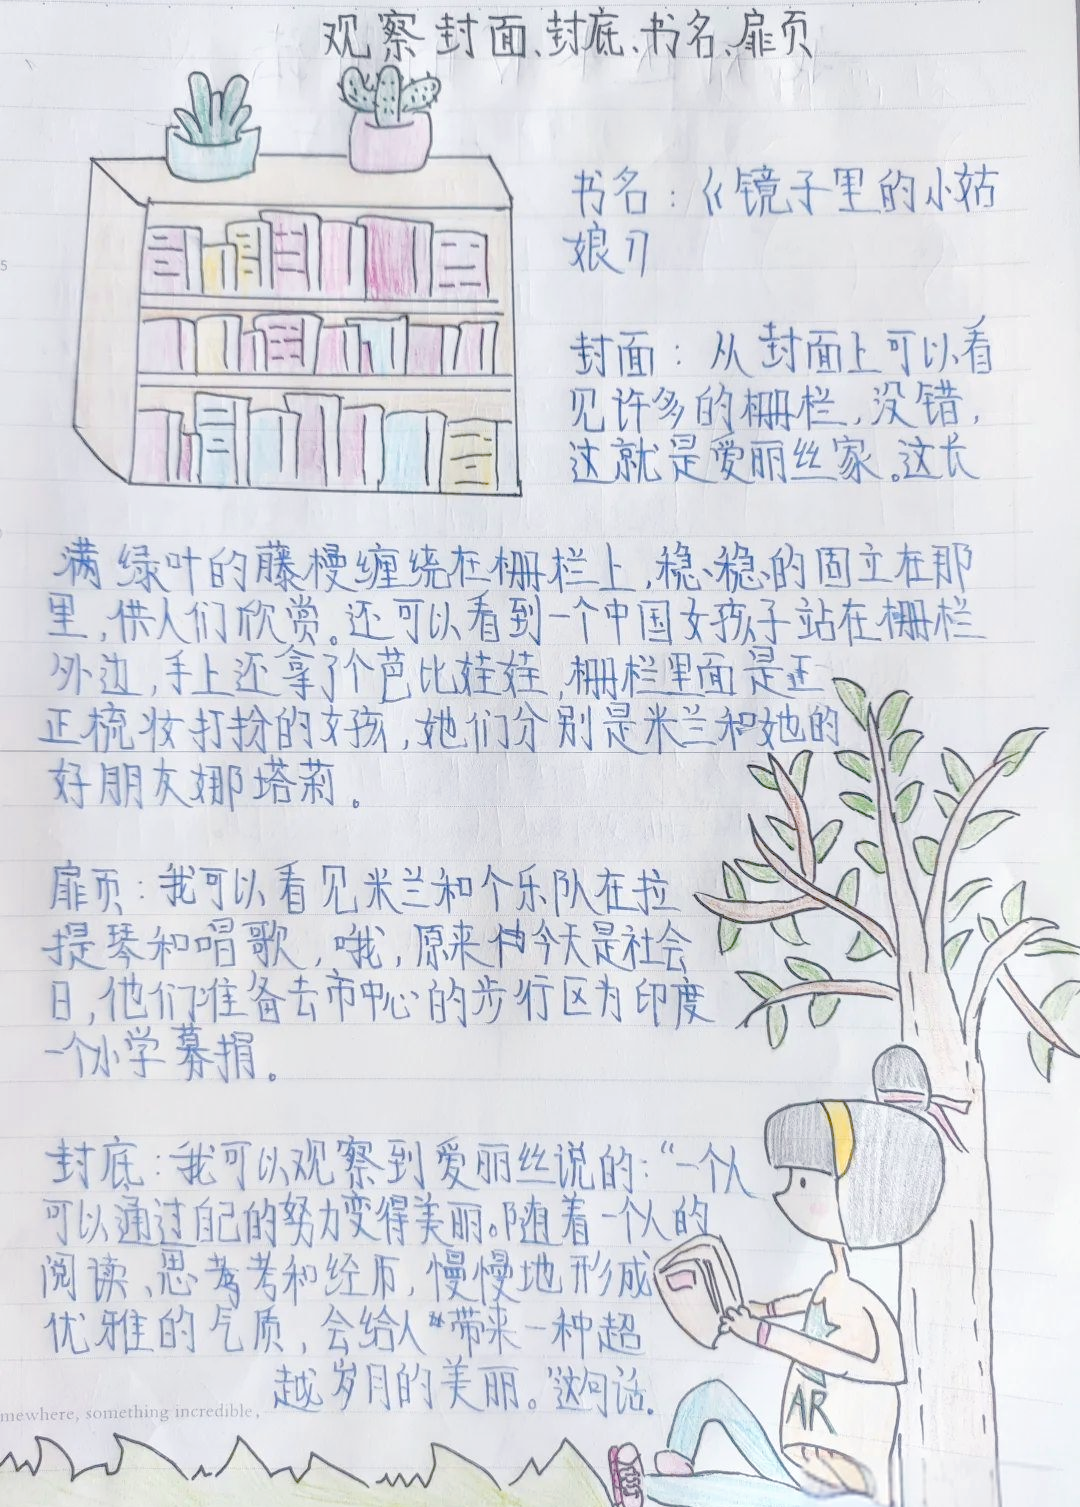 观察封面、封底、书名、扉页
书名：《镜子里的小姑
娘》
封面：从封面上可以看
见许多的栅栏，没错，
这就是爱丽丝家。这长
满绿叶的藤蔓缠绕在栅栏上，稳稳的固立在那
里，供人们欣赏。还可以看到一个中国女孩子站在栅栏
外边，手上还拿了个芭比娃娃，栅栏里面是正
正梳妆打扮的女孩，她们分别是米兰和她的
好朋友娜塔莉。
扉页：我可以看见米兰和个乐队在拉
提琴和唱歌，哦，原来今天是社会
日，他们准备去市中心的步行区为印度
一个小学募捐。
封底：我可以观察到爱丽丝说的：“一个人
可以通过自己的努力变得美丽。随着一个人的
阅读、思考和经历，慢慢地形成
优雅的气质，会给人带来一种超
越岁月的美丽。”这句话.
AR
mewhere, something incredible,
5